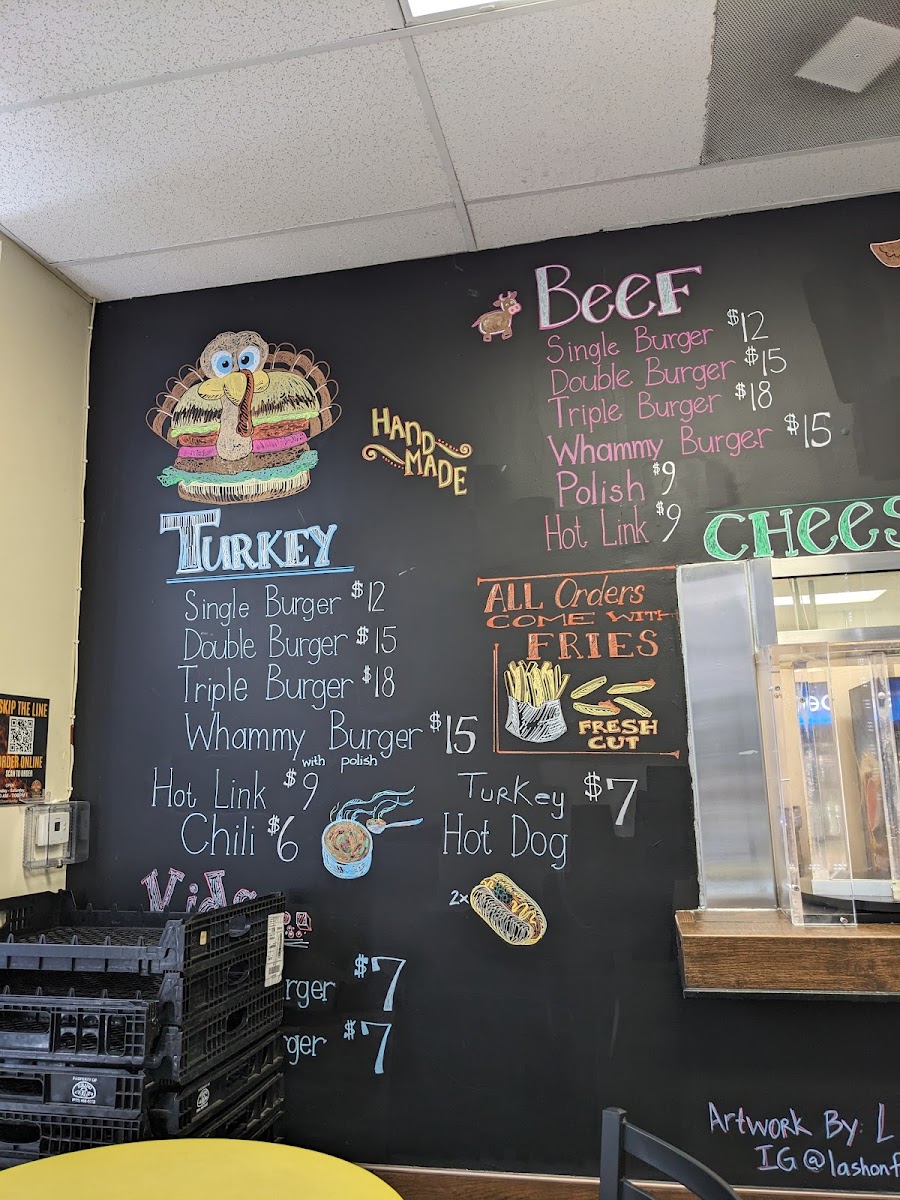 Beef
Single Burger $12
Double Burger $15
Triple Burger $18
Whammy Burger $15
Polish $9
Hot Link $9
HAND
MADE
TURKEY
Single Burger $12
Double Burger $15
Triple Burger $18
Whammy Burger $15
with polish
Hot Link $9
Chili $6
Turkey
Hot Dog $7
2x
ALL Orders
COME WITH
FRIES
FRESH
CUT
CHEES
Kids
rger $7
ger $7
SKIP THE LINE
ORDER ONLINE
SCAN TO ORDER
PROPERTY OF
Artwork By: L
IG@lashonf